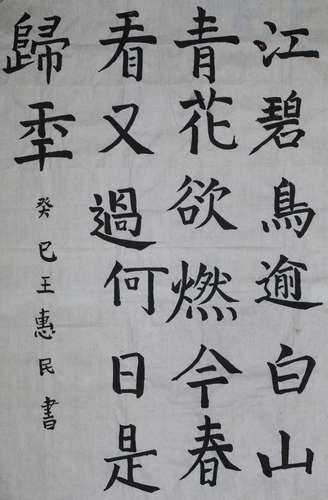 江碧鳥逾白山
青花欲燃今春
看又過何日是
歸秊
癸巳王惠民書